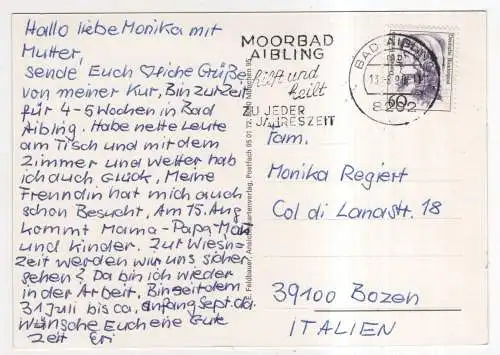 Hallo liebe Monika mit
Mutter,
sende Euch ♡liche Grüße
von meiner Kur, Bin zur Zeit
für 4-5 Wochen in Bad
Aibling. Habe nette Leute
am Tisch und mit dem
Zimmer und Wetter hab
ich auch Glück, Meine
Freundin hat mich auch
schon Besucht, Am 15. Aug
kommt Mama-Papa-Man
und Kinder. Zur Wiesn-
Zeit werden wir uns sicher
sehen? Da bin ich wieder
in der Arbeit. Bin seit dem
31 Juli bis ca. anfang Sept. da.
Wünsche Euch eine Gute
Zeit Eri
MOORBAD
AIBLING
hilft und
heilt
ZU JEDER
JAHRESZEIT
BAD AIBLING
8202
60
Deutsche Bundespost
Fam.
Monika Regiert
Col di Lanastr. 18
39100 Bozen
ITALIEN
E. Feldbauer, Ansichtskartenverlag, Postfach 95 01 72, 8000 München 95